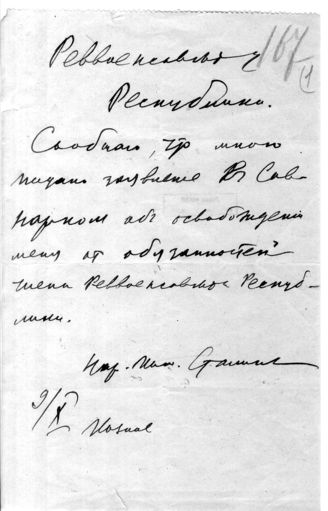 167
1
Реввоенсовету
Республики.
Сообщаю, что мною
подано заявление в Сов-
нарком об освобождении
меня от обязанностей
члена Реввоенсовета Респуб-
лики.
Нар. Ком. Сталин
9/X